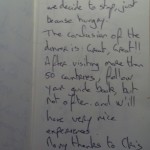 we decide to stop, just
because hungry!
The conclusion of the
dinner is: Great, Great!!
After visiting more than
50 countries, follow
your guide books, but
not often and we'll
have very nice
experiences
Many thanks to Chris